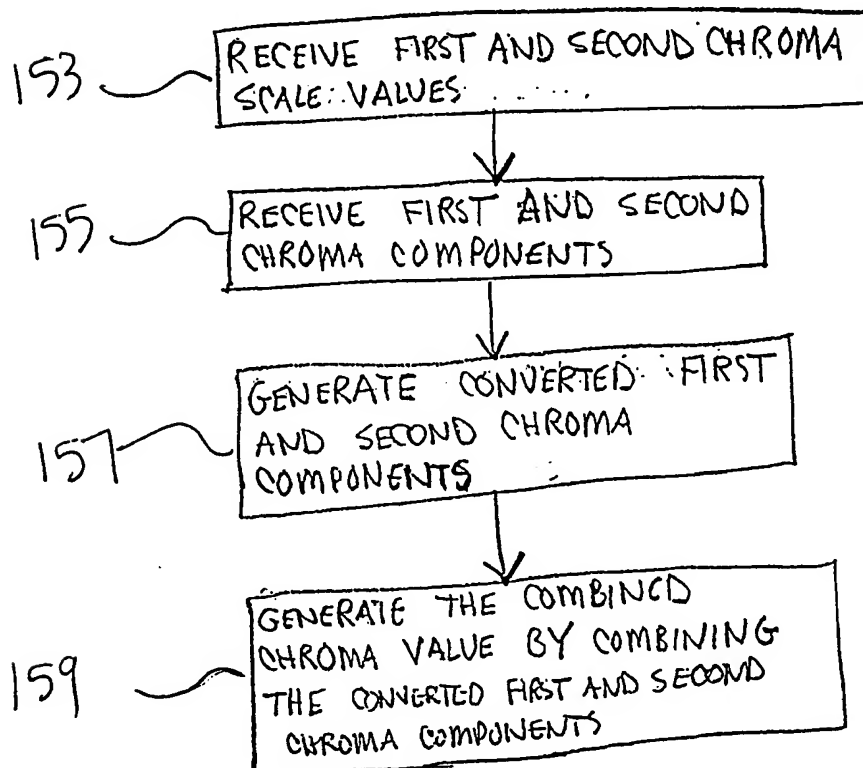 153
RECEIVE FIRST AND SECOND CHROMA
SCALE VALUES
155
RECEIVE FIRST AND SECOND
CHROMA COMPONENTS
157
GENERATE CONVERTED FIRST
AND SECOND CHROMA
COMPONENTS
159
GENERATE THE COMBINED
CHROMA VALUE BY COMBINING
THE CONVERTED FIRST AND SECOND
CHROMA COMPONENTS